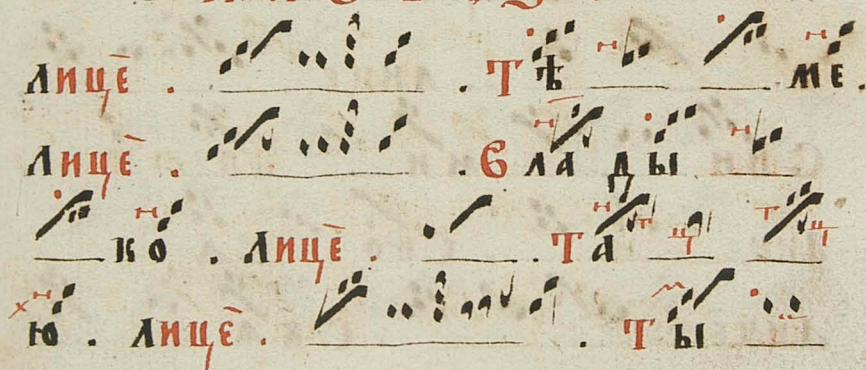 лице . . Тѣ ме .
лице . . в ла ды
ко . лице . . Та
ю . лице . . Ты